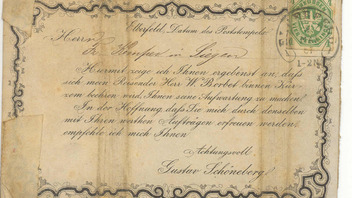 Elberfeld, Datum des Poststempels.
Herrn
in Siegen
Hiermit zeige ich Ihnen ergebenst an, daß
sich mein Reisender Herr W. Berbet binnen Kur-
zem beehren wird, Ihnen seine Aufwartung zu machen.
In der Hoffnung, daß Sie mich durch denselben
mit Ihren werthen Aufträgen erfreuen werden,
empfehle ich mich Ihnen
Achtungsvoll
Gustav Schöneberg.
1-2N